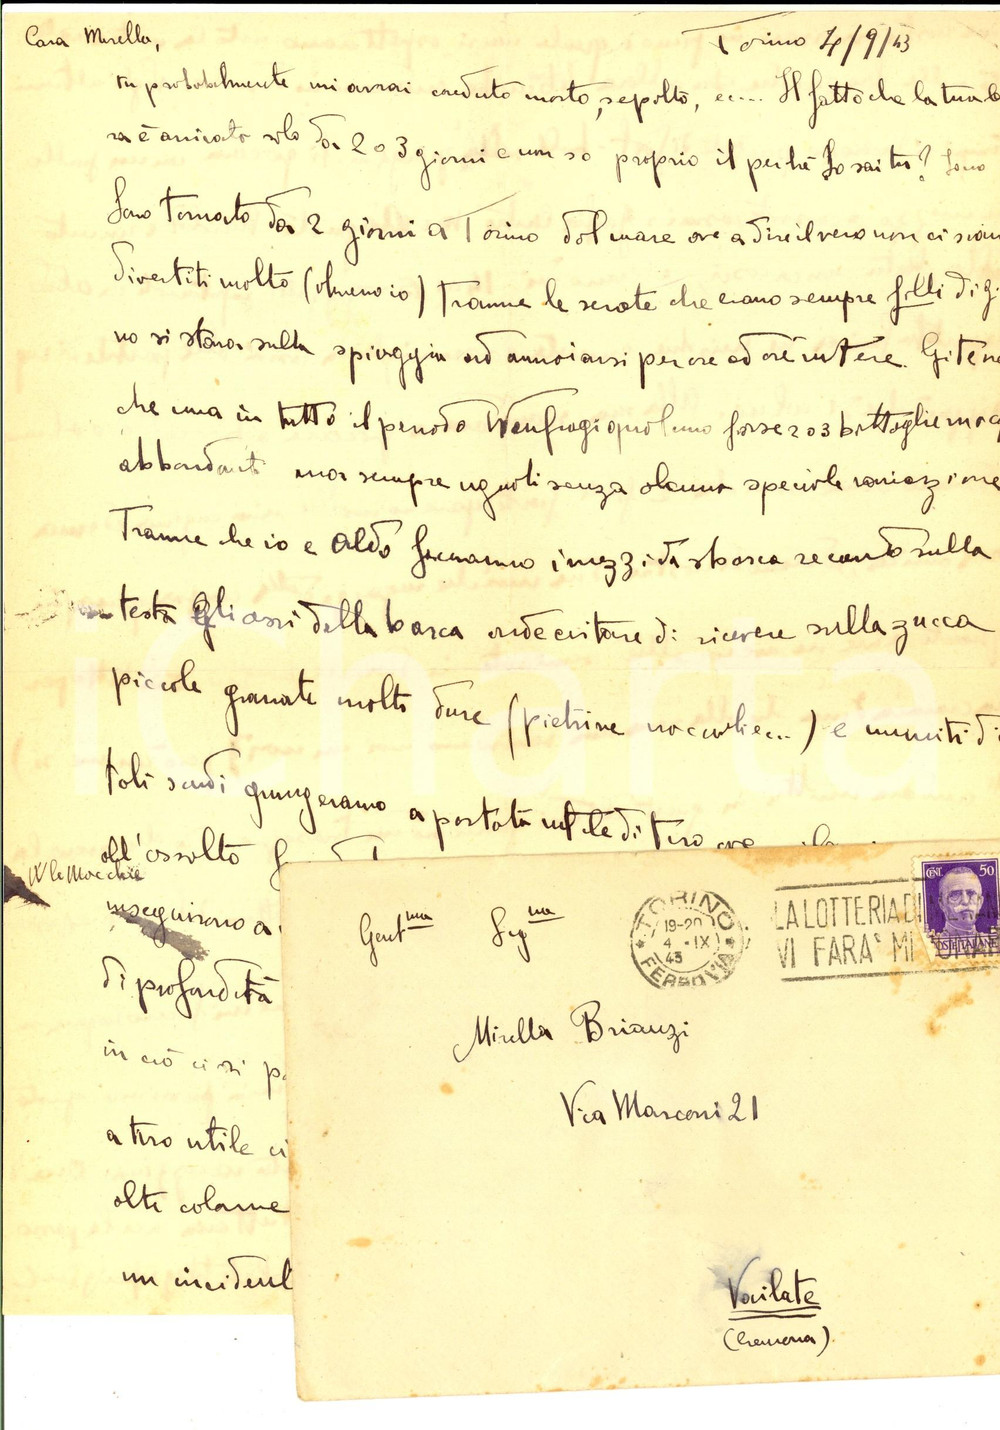 Cara Mirella,
Torino 4/9/43
tu probabilmente mi avrai creduto morto, sepolto, ec... Il fatto che la tua le
ra è arrivata solo da 2 o 3 giorni e non so proprio il perché Lo sai tu? Sono
Sono tornato da 2 giorni a Torino dal mare ove a dire il vero non ci siam
divertiti molto (almeno io) Tranne le serate che erano sempre folli di g
no si stava sulla spiaggia ad annoiarsi per ore ed ore intere. Gite ne
che una in tutto il periodo forse 2 o 3 battaglie
abbondanti ma sempre uguali senza alcuna speciale variazione
Tranne che io e Aldo fermammo i mezzi da sbarco recando sulla
testa gli assi della barca onde evitare di ricevere sulla zucca
piccole granate molto dure (pietrine noccioline...) e muniti di
toli sandi giungeramo a portata utile di tiro ove
all'assalto
W le Mocchie
inseguirono a
di profondità
in ciò ci si p
a tiro utile ci
olte colarne
un incident
Gent.ma Sig.na
Mirella Brianzi
Via Marconi 21
Vailate
(Cremona)
TORINO
19-20
4 · IX
43
FERROVIA
LA LOTTERIA DI
VI FARA' MI
CENT. 50
POSTE ITALIANE